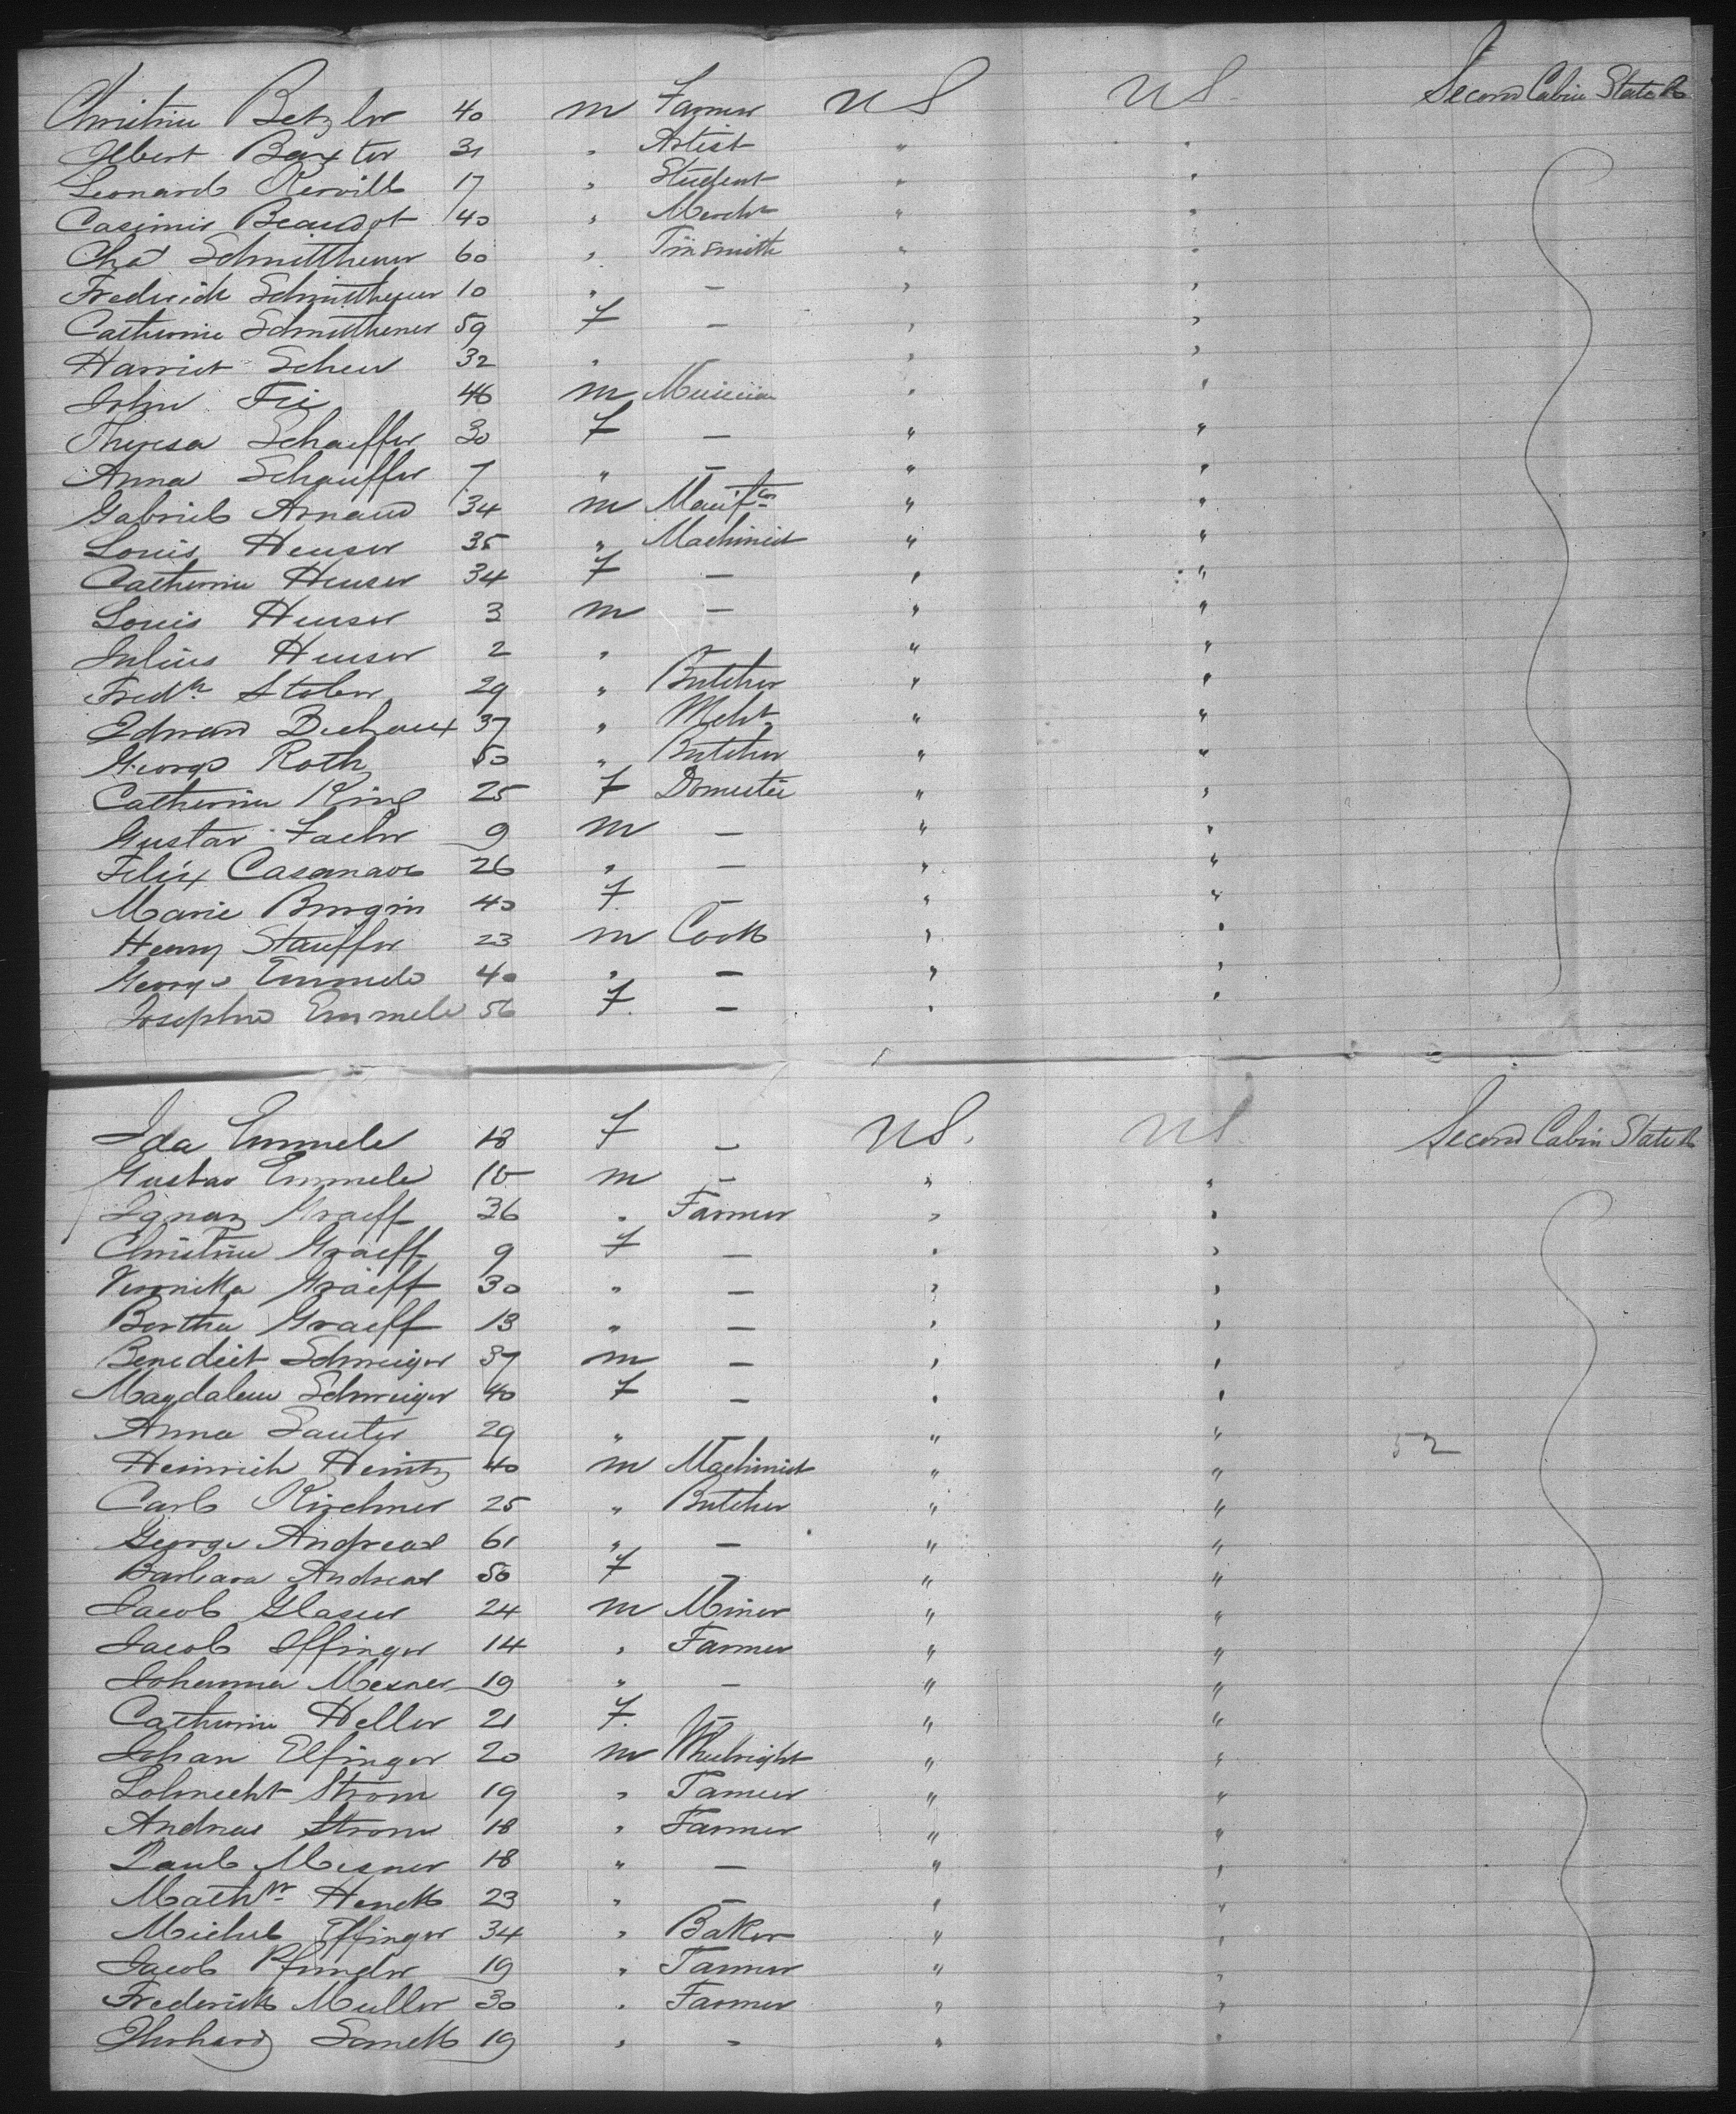 Christine Betzler 40 m Farmer US US Second Cabin State R
Albert Baxter 31 " Artist " "
Leonard 17 " Student " "
Casimir Beaudot 40 " Mercht " "
Chas Schmitthener 60 " Tinsmith " "
Frederick Schmitthener 10 " — " "
Catherine Schmitthener 59 F — " "
Harriet Scheu 32 " — " "
John Fie 46 m Musician " "
Theresa Schaeffer 30 F — " "
Anna Schaeffer 7 " — " "
Gabriel Arnaud 34 m Manifter " "
Louis Heuser 35 " Machinist " "
Catherine Heuser 34 F — " "
Louis Heuser 3 m — " "
Julius Heuser 2 " — " "
Fredk Stober 29 " Butcher " "
Edward 37 " Mcht " "
George Roth 50 " Butcher " "
Catherine King 25 F Domestic " "
Gustav Faehr 9 m — " "
Felix Casanave 26 " — " "
Marie Burgin 40 F — " "
Henry Stauffer 23 m Cook " "
George Emmele 40 " — " "
Josephine Emmele 56 F — " "
Ida Emmele 18 F — US. US. Second Cabin State R
Gustav Emmele 15 m — " "
Ignaz Graeff 36 " Farmer " "
Christine Graeff 9 F — " "
Veronika Graeff 30 " — " "
Bertha Graeff 13 " — " "
Benedict Schweiger 37 m — " "
Magdalene Schweiger 40 F — " "
Anna Sauter 29 " — " "
Heinrich Heintz 40 m Machinist " " 52
Carl Kirchner 25 " Butcher " "
George Andreas 61 " — " "
Barbara Andreas 50 F — " "
Jacob Glaser 24 m Miner " "
Jacob Effinger 14 " Farmer " "
Johanna Mesner 19 " — " "
Catherine Heller 21 F. — " "
Johan Elfinger 20 m Wheelright " "
Strom 19 " Farmer " "
Andreas Strom 18 " Farmer " "
Paul Mesner 18 " — " "
Mathw Henck 23 " — " "
Michel Effinger 34 " Baker " "
Jacob Pfinder 19 " Farmer " "
Frederick Muller 30 " Farmer " "
Ehrhard 19 " — " "